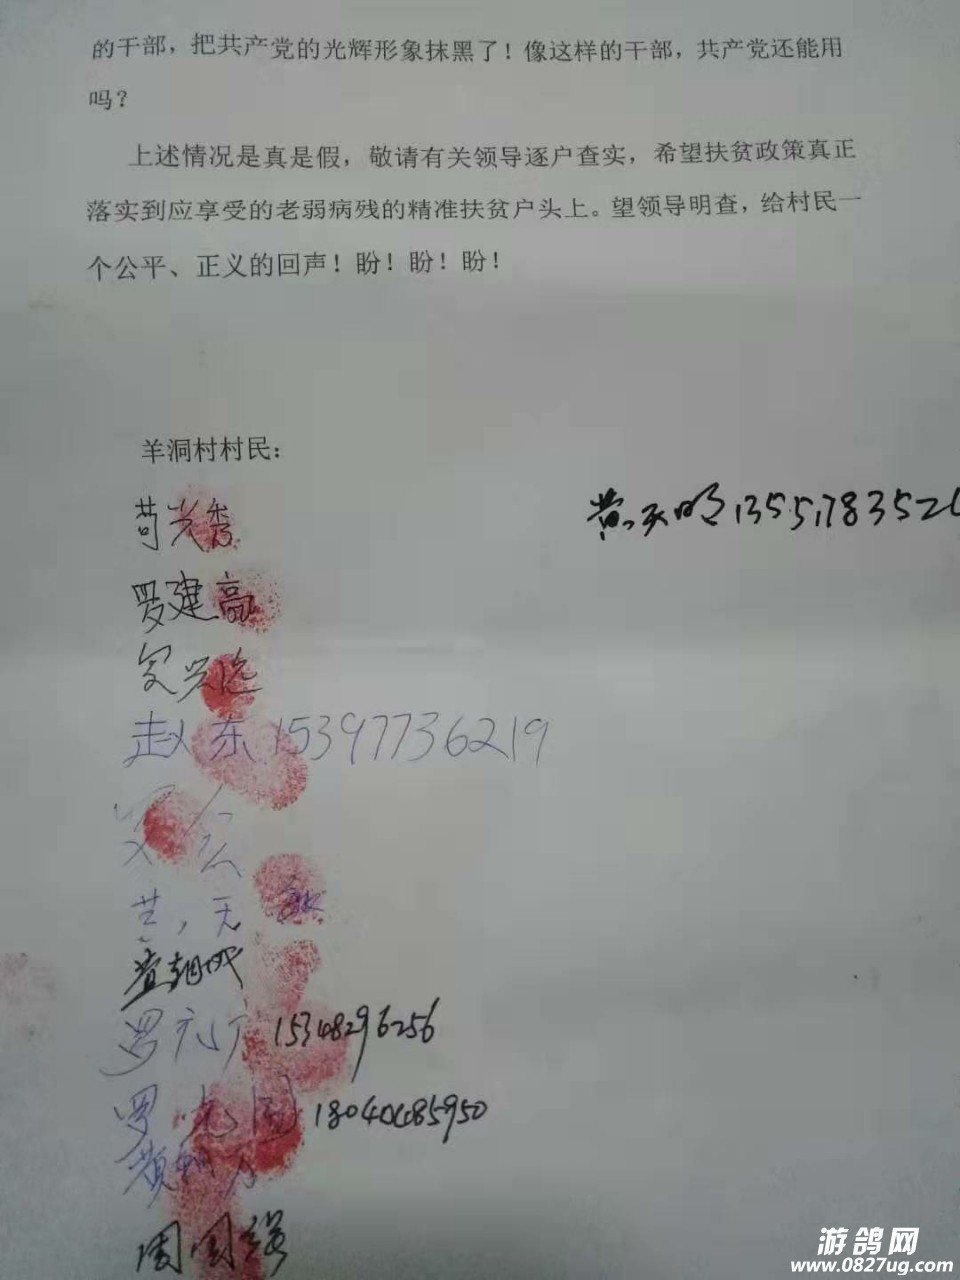 的干部，把共产党的光辉形象抹黑了！像这样的干部，共产党还能用
吗？
上述情况是真是假，敬请有关领导逐户查实，希望扶贫政策真正
落实到应享受的老弱病残的精准扶贫户头上。望领导明查，给村民一
个公平、正义的回声！盼！盼！盼！
羊洞村村民：
苟兴秀
黄天明1355178352
罗建高
赵东15397736219
罗元广15348296256
罗光国18040485950
周国强
游鸽网
www.0827ug.com